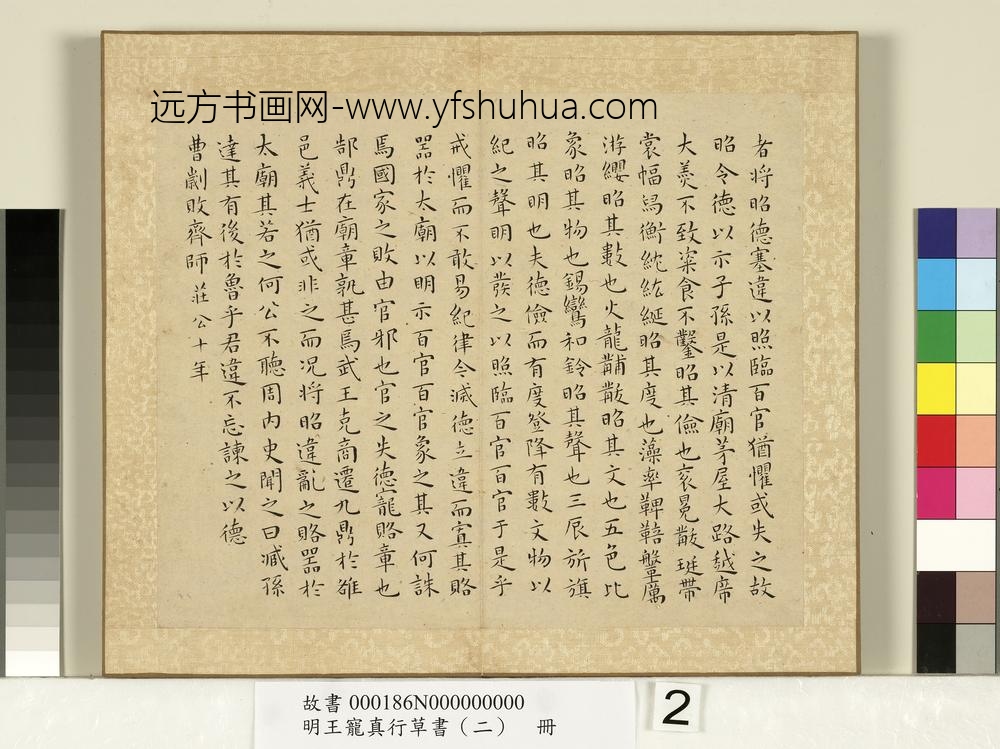 远方书画网-www.yfshuhua.com
者将昭德塞違以照臨百官猶懼或失之故
昭令德以示子孫是以清廟茅屋大路越席
大羹不致粢食不鑿昭其儉也衮冕黻珽帶
裳幅舄衡紞紘綖昭其度也藻率鞞鞛鞶厲
游纓昭其數也火龍黼黻昭其文也五色比
象昭其物也鍚鸞和鈴昭其聲也三辰旂旗
昭其明也夫德儉而有度登降有數文物以
紀之聲明以發之以照臨百官百官于是乎
戒懼而不敢易紀律今滅德立違而寘其賂
器於太廟以明示百官百官象之其又何誅
焉國家之敗由官邪也官之失德寵賂章也
郜鼎在廟章孰甚焉武王克商遷九鼎於雒
邑義士猶或非之而况將昭違亂之賂器於
太廟其若之何公不聽周内史聞之曰臧孫
達其有後於魯乎君違不忘諫之以德
曹劌敗齊師 莊公十年
故書 000186N000000000
明王寵真行草書（二） 冊
2